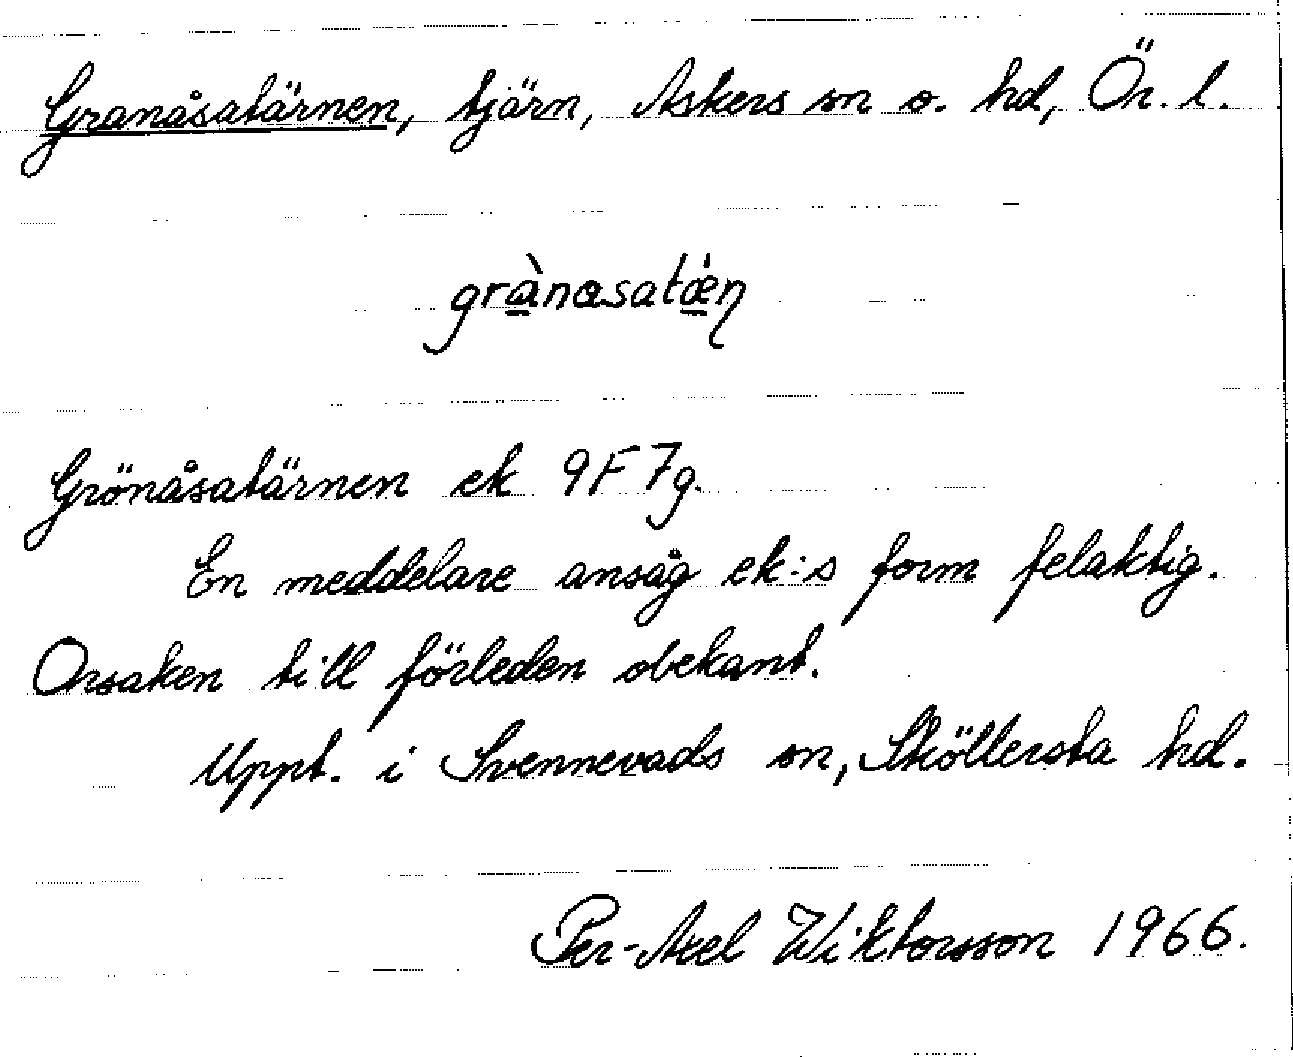 Granåsatärnen, tjärn, Askers sn o. hd, Ör. l.
grànåsatǽn
Grönåsatärnen ek 9F 7g.
En meddelare ansåg ek:s form felaktig.
Orsaken till förleden obekant.
Uppt. i Svennevads sn, Sköllersta hd.
Per-Axel Wiktorsson 1966.